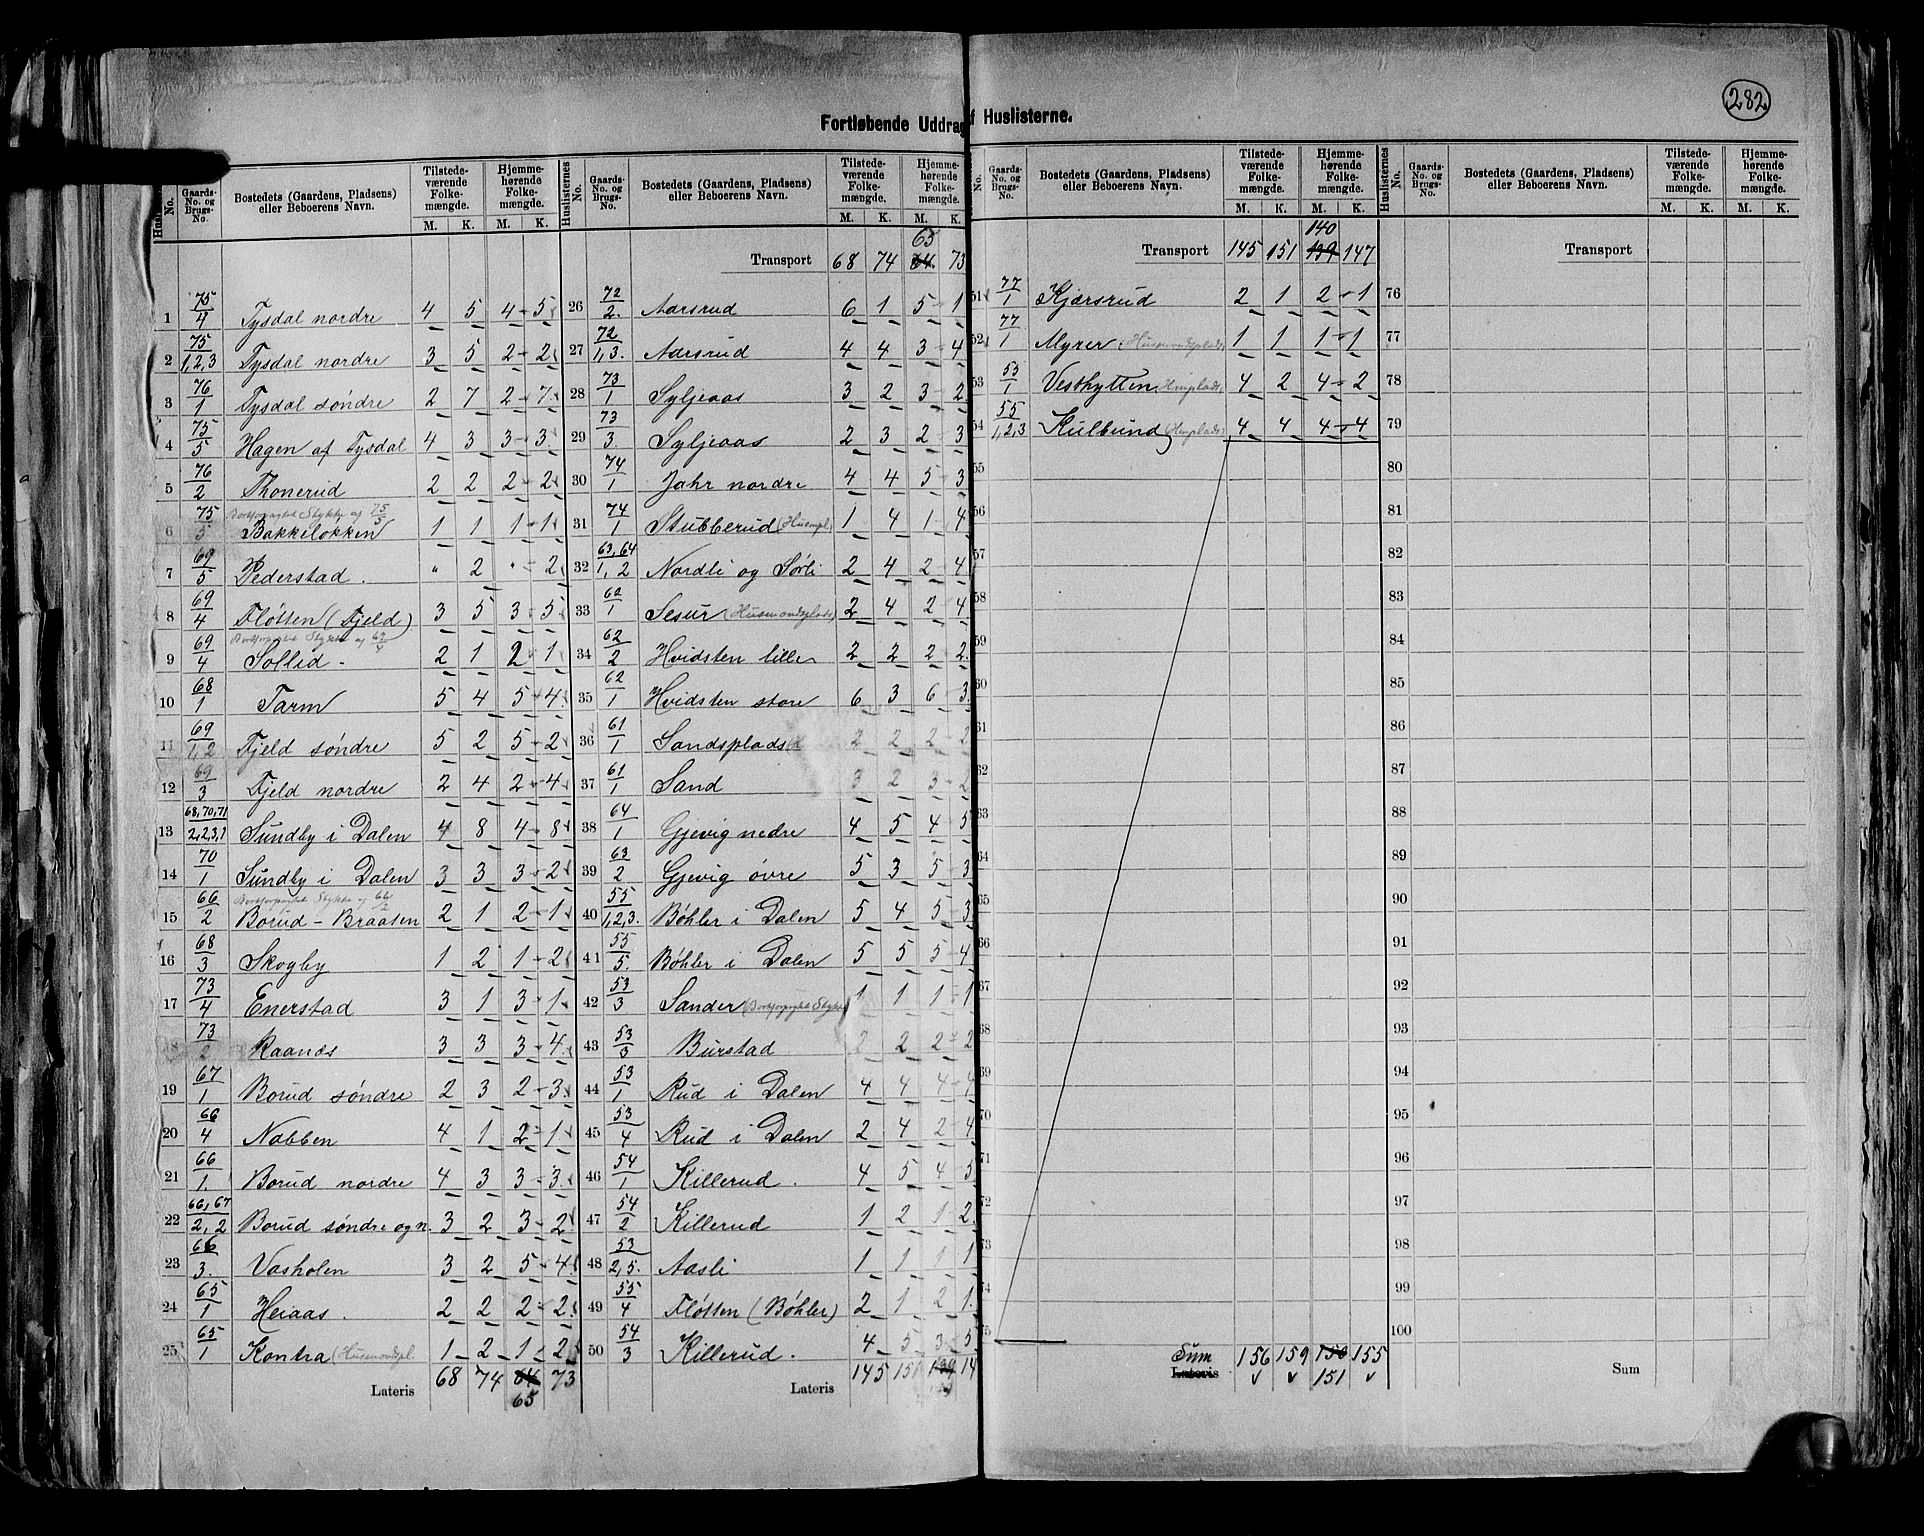 282
Fortløbende Uddrag af Huslisterne.
Huslisternes No. | Gaards-No. og Brugs-No. | Bostedets (Gaardens, Pladsens) eller Beboerens Navn. | Tilstedeværende Folkemængde. M. K. | Hjemmehørende Folkemængde. M. K.
1 75/4 Tysdal nordre 4 5 4 5
2 75/1,2,3 Tysdal nordre 3 5 2 2
3 76/1 Tysdal søndre 2 7 2 7
4 75/5 Hagen af Tysdal 4 3 3 3
5 76/2 Thonerud 2 2 2 2
6 75/5 Bortforpagtet Stykke af 75/5 Bakkeløkken 1 1 1 1
7 69/5 Pederstad. " 2 " 2
8 69/4 Fløtten (Fjeld) 3 5 3 5
9 69/4 Bortforpagtet Stykke af 69/4 Sollid. 2 1 2 1
10 68/1 Tarm 5 4 5 4
11 69/1,2 Fjeld søndre 5 2 5 2
12 69/3 Fjeld nordre 2 4 2 4
13 68,70,71/2,2,3,1 Sundby i Dalen 4 8 4 8
14 70/1 Sundby i Dalen 3 3 3 2
15 66/2 Bortforpagtet Stykke af 66/2 Borud-Braaten 2 1 2 1
16 68/3 Skogby 1 2 1 2
17 73/4 Enerstad 3 1 3 1
18 73/2 Raanæs 3 3 3 4
19 67/1 Borud søndre 2 3 2 3
20 66/4 Nabben 4 1 2 1
21 66/1 Borud nordre 4 3 3 3
22 66,67/2,2 Borud søndre og n. 3 2 3 2
23 66/3. Vasholen 3 2 5 4
24 65/1 Heiaas. 2 2 2 2
25 65/1 Kontra (Husmandspl. 1 2 1 2
Lateris 68 74 64 73
65
Transport 68 74 64 73
65
26 72/2. Aarsrud 6 1 5 1
27 72/1,3. Aarsrud 4 4 3 4
28 73/1 Syljeaas 3 2 3 2
29 73/3. Syljeaas 2 3 2 3
30 74/1 Jahr nordre 4 4 5 3
31 74/1 Stubberud (Husmpl.) 1 4 1 4
32 63,64/1,2 Nordli og Sørli 2 4 2 4
33 62/1 Sesur (Husmandsplads) 2 4 2 4
34 62/2 Hvidsten lille 2 2 2 2
35 62/1 Hvidsten store 6 3 6 3
36 61/1 Sandsplads 2 2 2 2
37 61/1 Sand 3 2 3 2
38 64/1 Gjevig nedre 4 5 4 5
39 63/2 Gjevig øvre 5 3 5 3
40 55/1,2,3. Bøhler i Dalen 5 4 5 3
41 55/5. Bøhler i Dalen 5 5 5 4
42 53/3 Sander (Bortforpagtet Stykke) 1 1 1 1
43 53/3 Burstad 2 2 2 2
44 53/1 Rud i Dalen 4 4 4 4
45 53/4 Rud i Dalen 2 4 2 4
46 54/1 Killerud. 4 5 4 5
47 54/2 Killerud 1 2 1 2
48 53/2,5. Aasli 1 1 1 1
49 55/4 Fløtten (Bøhler) 2 1 2 1
50 54/3 Killerud. 4 5 3 5
Lateris 145 151 139 14
Transport 145 151 139 147
140
51 77/1 Kjærsrud 2 1 2 1
52 77/1 Myrer (Husmandsplads) 1 1 1 1
53 53/1 Vesthytten (Hmplads) 4 2 4 2
54 55/1,2,3 Kulbund (Hmplads) 4 4 4 4
55
56
57
58
59
60
61
62
63
64
65
66
67
68
69
70
71
72
73
74
75
Sum Lateris 156 159 150 155
151
Transport
76
77
78
79
80
81
82
83
84
85
86
87
88
89
90
91
92
93
94
95
96
97
98
99
100
Sum